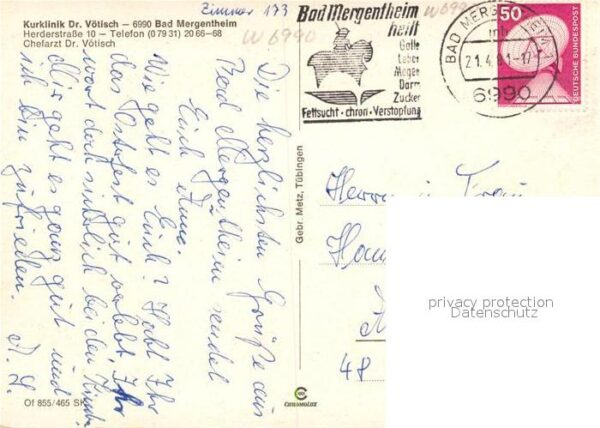 Kurklinik Dr. Vötisch — 6990 Bad Mergentheim
Herderstraße 10 — Telefon (0 79 31) 20 66—68
Chefarzt Dr. Vötisch
Zimmer 173
W 6990
W 6990
Bad Mergentheim
heilt
Galle
Leber
Magen
Darm
Zucker
Fettsucht - chron. Verstopfung
BAD MERGENTHEIM
mb
21.4.81-17
6990
50
DEUTSCHE BUNDESPOST
Die herzlichsten Grüße aus
Bad Mergentheim sendet
Euch
Wie geht es Euch? Habt Ihr
das Osterfest gut verlebt, Ihr
wart doch sicherlich bei den Kindern.
Mir geht es ganz gut und
ich bin zufrieden.
Gebr. Metz, Tübingen
Herrn u. Frau
48
privacy protection
Datenschutz
CHROMOLUX
Of 855/465 SK